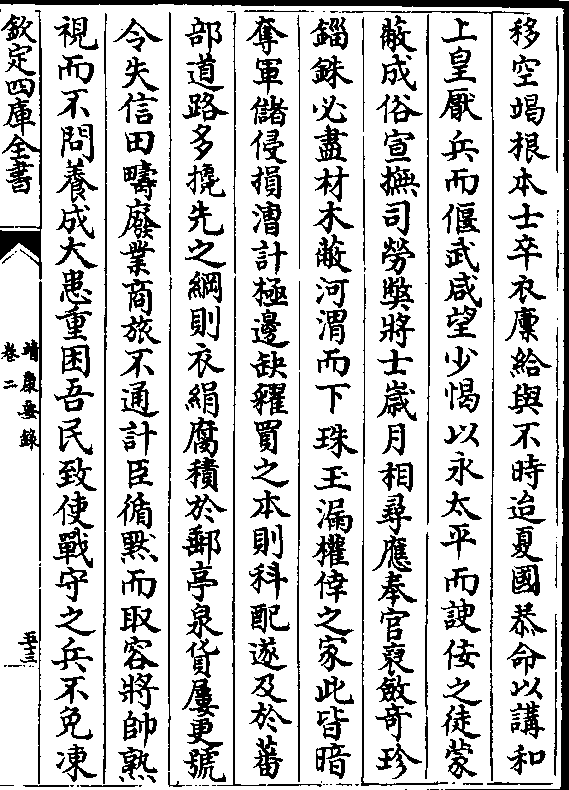 移空竭根本士卒衣廪給與不時迨夏國恭命以講和
上皇厭兵而偃武咸望少愒以永太平而諛佞之徒蒙
蔽成俗宣撫司勞獘將士嵗月相尋應奉官裒斂竒珍
錙銖必盡材木蔽河渭而下珠玉漏權倖之家此皆暗
奪軍儲侵損漕計極邊缺糴買之本則科配遂及於蕃
部道路多撓先之綱則衣絹腐積於郵亭泉貨屢更號
令失信田疇廢業商旅不通計臣循黙而取容將帥熟
視而不問養成大患重困吾民致使戰守之兵不免凍
欽定四庫全書
靖康要錄
卷二
五十三